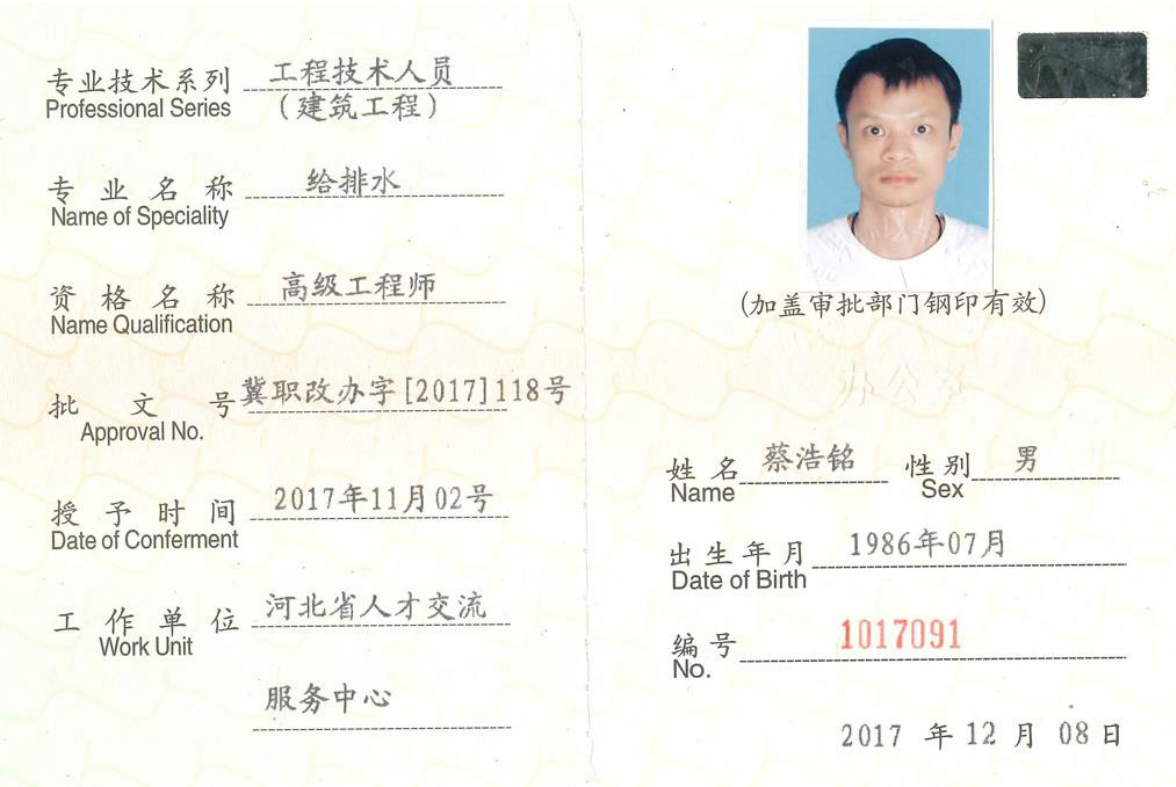 专业技术系列 工程技术人员
Professional Series (建筑工程)
专业名称 给排水
Name of Speciality
资格名称 高级工程师
Name Qualification
批文号 冀职改办字[2017]118号
Approval No.
授予时间 2017年11月02号
Date of Conferment
工作单位 河北省人才交流
Work Unit
服务中心
(加盖审批部门钢印有效)
办公室
姓名 蔡浩铭 性别 男
Name Sex
出生年月 1986年07月
Date of Birth
编号 1017091
No.
2017 年 12 月 08 日